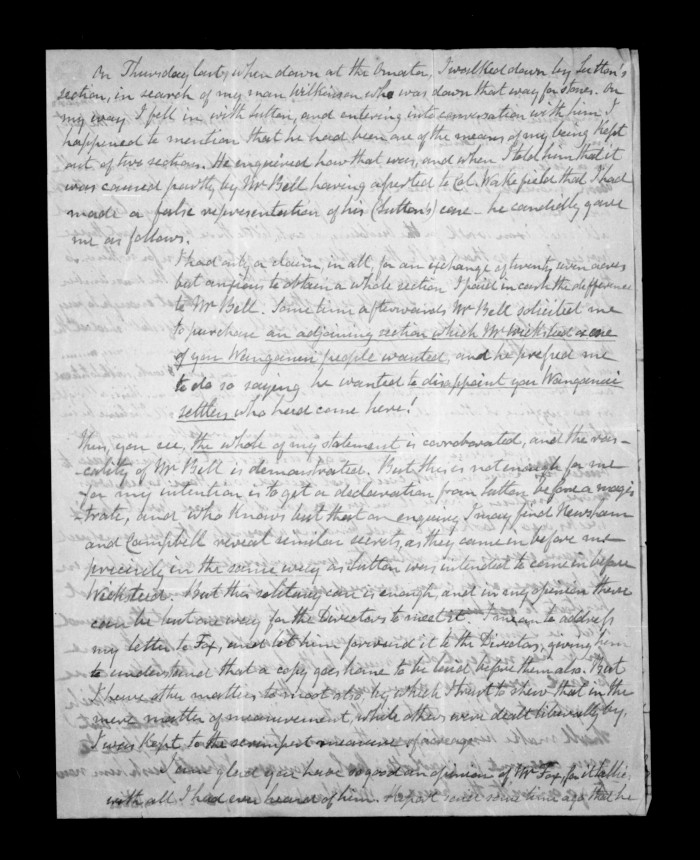 On Thursday last, when down at the Omata, I walked down by Sutton's
section, in search of my man Wilkinson who was down that way for stores. On
my way I fell in with Sutton, and entering into conversation with him, I
happened to mention that he had been one of the means of my being kept
out of two sections. He enquired how that was, and when I told him that it
was caused partly by Mr Bell having asserted to Col. Wakefield that I had
made a false representation of his (Sutton's) case - he candidly gave
me as follows.
I had only a claim, in all, for an exchange of twenty seven acres
but anxious to obtain a whole section I paid in cash the difference
to Mr Bell. Sometime afterwards Mr Bell solicited me
to purchase an adjoining section which Mr Wicksteed or one
of you Wanganui people wanted, and he pressed me
to do so saying he wanted to disappoint you Wanganui
settlers who had come here!
Thus, you see, the whole of my statement is corroborated, and the ras-
cality of Mr Bell is demonstrated. But this is not enough for me
for my intention is to get a declaration from Sutton before a magis
-trate, and who knows but that on enquiry I may find Newsham
and Campbell reveal similar secrets, as they came in before me
precisely in the same way as Sutton was intended to come in before
Wicksteed. But this solitary case is enough, and in my opinion there
can be but one way for the Directors to meet it. I mean to address
my letter to Fox, and let him forward it to the Directors, giving him
to understand that a copy goes home to be laid before them also. But
I have other matters to by which I trust to shew that in the
mere matter of measurement, while others were dealt liberally by,
I was kept to the scrimpest measure of usage.
I am glad you have so good an opinion of Mr Fox, for it tallies
with all I had ever heard of him. Report some time ago that he